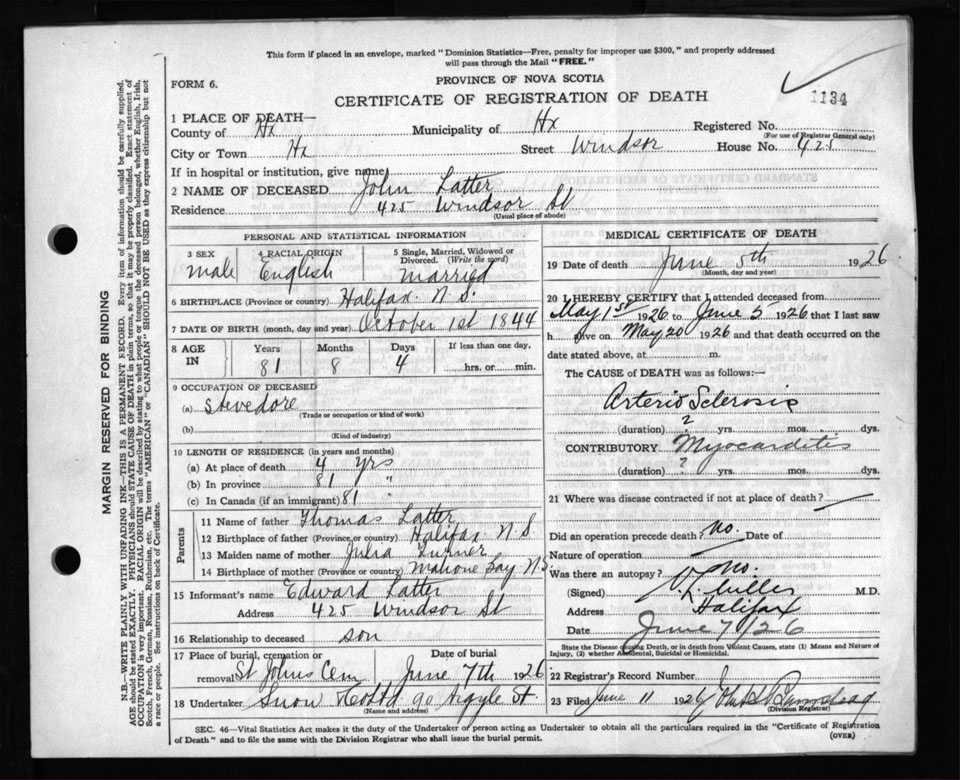 This form if placed in an envelope, marked "Dominion Statistics—Free, penalty for improper use $300," and properly addressed
will pass through the Mail "FREE."
FORM 6.
PROVINCE OF NOVA SCOTIA
1134
CERTIFICATE OF REGISTRATION OF DEATH
1 PLACE OF DEATH—
County of Hx Municipality of Hx Registered No.
(For use of Registrar General only)
City or Town Hx Street Windsor House No. 425
If in hospital or institution, give name
2 NAME OF DECEASED John Latter
Residence 425 Windsor St
(Usual place of abode)
PERSONAL AND STATISTICAL INFORMATION
3 SEX male
4 RACIAL ORIGIN English
5 Single, Married, Widowed or
Divorced. (Write the word)
married
6 BIRTHPLACE (Province or country) Halifax N.S.
7 DATE OF BIRTH (month, day and year) October 1st 1844
8 AGE IN
Years Months Days If less than one day,
81 8 4 hrs. or min.
9 OCCUPATION OF DECEASED
(a) Stevedore
(Trade or occupation or kind of work)
(b)
(Kind of industry)
10 LENGTH OF RESIDENCE (in years and months)
(a) At place of death 4 yrs
(b) In province 81 "
(c) In Canada (if an immigrant) 81 "
Parents
11 Name of father Thomas Latter
12 Birthplace of father (Province or country) Halifax N S
13 Maiden name of mother Julia Turner
14 Birthplace of mother (Province or country) Mahone Bay N.S.
15 Informant's name Edward Latter
Address 425 Windsor St
16 Relationship to deceased son
17 Place of burial, cremation or Date of burial
removal St Johns Cem June 7th 1926
18 Undertaker Snow & Co Ltd 90 Argyle St.
(Name and address)
MEDICAL CERTIFICATE OF DEATH
19 Date of death June 5th 1926
(Month, day and year)
20 I HEREBY CERTIFY that I attended deceased from
May 1st 1926 to June 5 1926 that I last saw
h alive on May 20 1926 and that death occurred on the
date stated above, at m.
The CAUSE of DEATH was as follows:—
Arterio Sclerosis
(duration) ? yrs. mos. dys.
CONTRIBUTORY Myocarditis
(duration) ? yrs. mos. dys.
21 Where was disease contracted if not at place of death?
Did an operation precede death? No. Date of
Nature of operation
Was there an autopsy? No.
(Signed) Miller M.D.
Address Halifax
Date June 7/26
State the Disease causing Death, or in death from Violent Causes, state (1) Means and Nature of
Injury, (2) whether Accidental, Suicidal or Homicidal.
22 Registrar's Record Number
23 Filed June 11 1926
(Division Registrar)
SEC. 46—Vital Statistics Act makes it the duty of the Undertaker or person acting as Undertaker to obtain all the particulars required in the "Certificate of Registration
of Death" and to file the same with the Division Registrar who shall issue the burial permit.
(OVER)
MARGIN RESERVED FOR BINDING
N.B.—WRITE PLAINLY WITH UNFADING INK—THIS IS A PERMANENT RECORD. Every item of information should be carefully supplied.
AGE should be stated EXACTLY. PHYSICIANS should STATE CAUSE OF DEATH in plain terms, so that it may be properly classified. Exact statement of
OCCUPATION is very important. RACIAL ORIGIN will be described by stating to what people or tongue the deceased person belonged, whether English, Irish,
Scotch, French, German, Russian, Ruthenian, etc. The terms "AMERICAN" or "CANADIAN" SHOULD NOT BE USED as they express citizenship but not
a race or people. See instructions on back of Certificate.